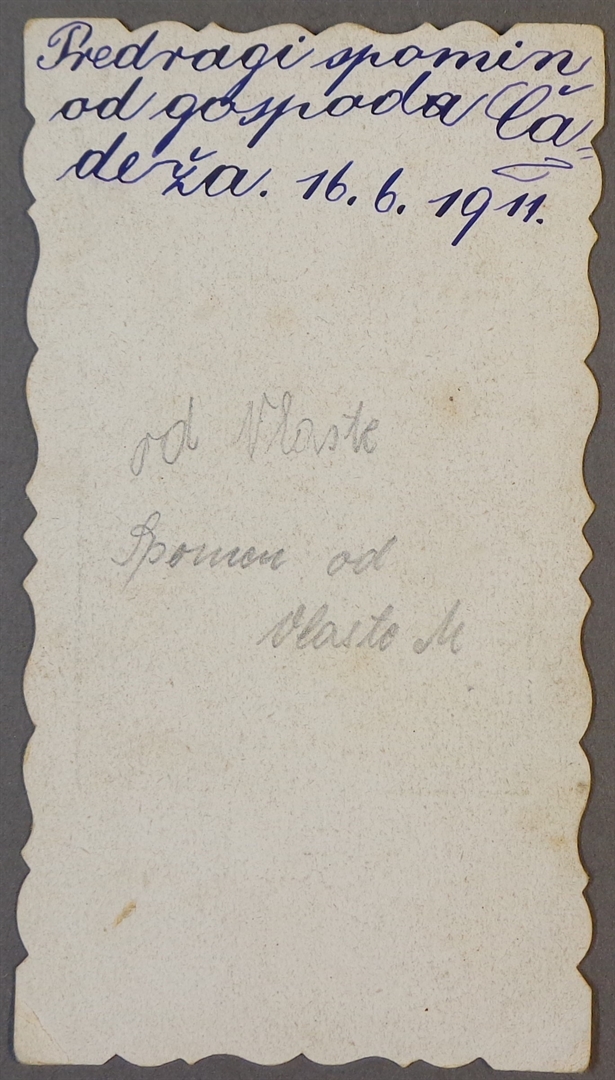 Predragi spomin
od gospoda Ča-
deža. 16. 6. 1911.
od Vlaste
Spomen od
Vlasto M